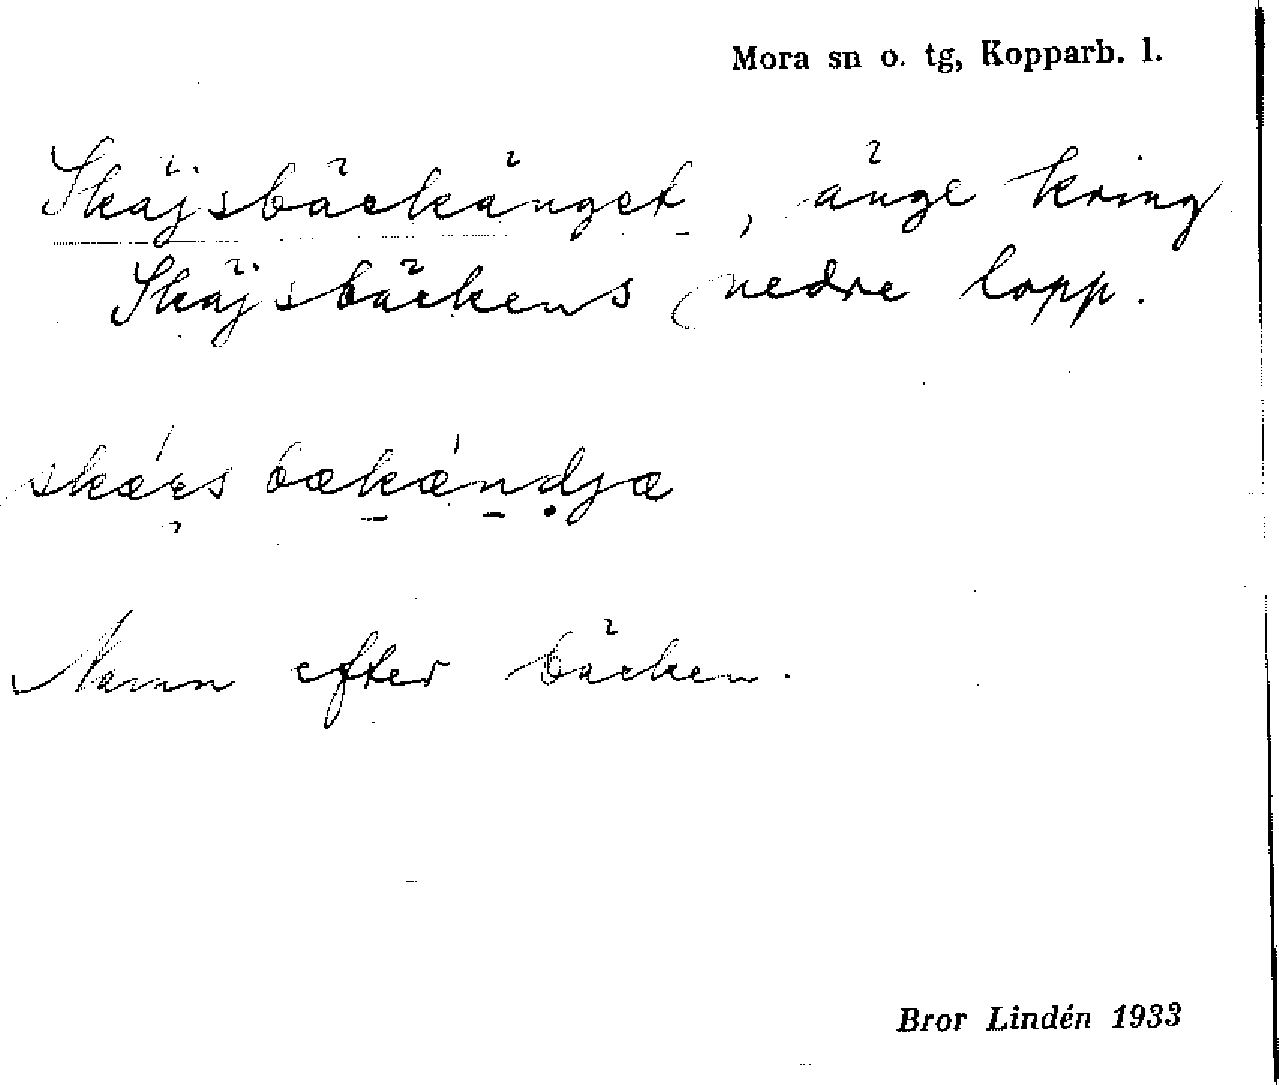 Mora sn o. tg, Kopparb. l.
Skäjsbäckänget, änge kring
Skäjsbäckens nedre lopp.
Namn efter bäcken.
Bror Lindén 1933